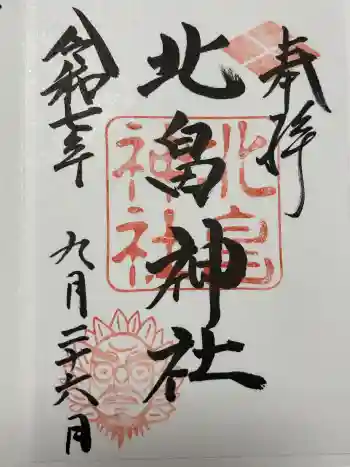 奉拝
北畠神社
北畠
神社
令和七年
九月二十六月